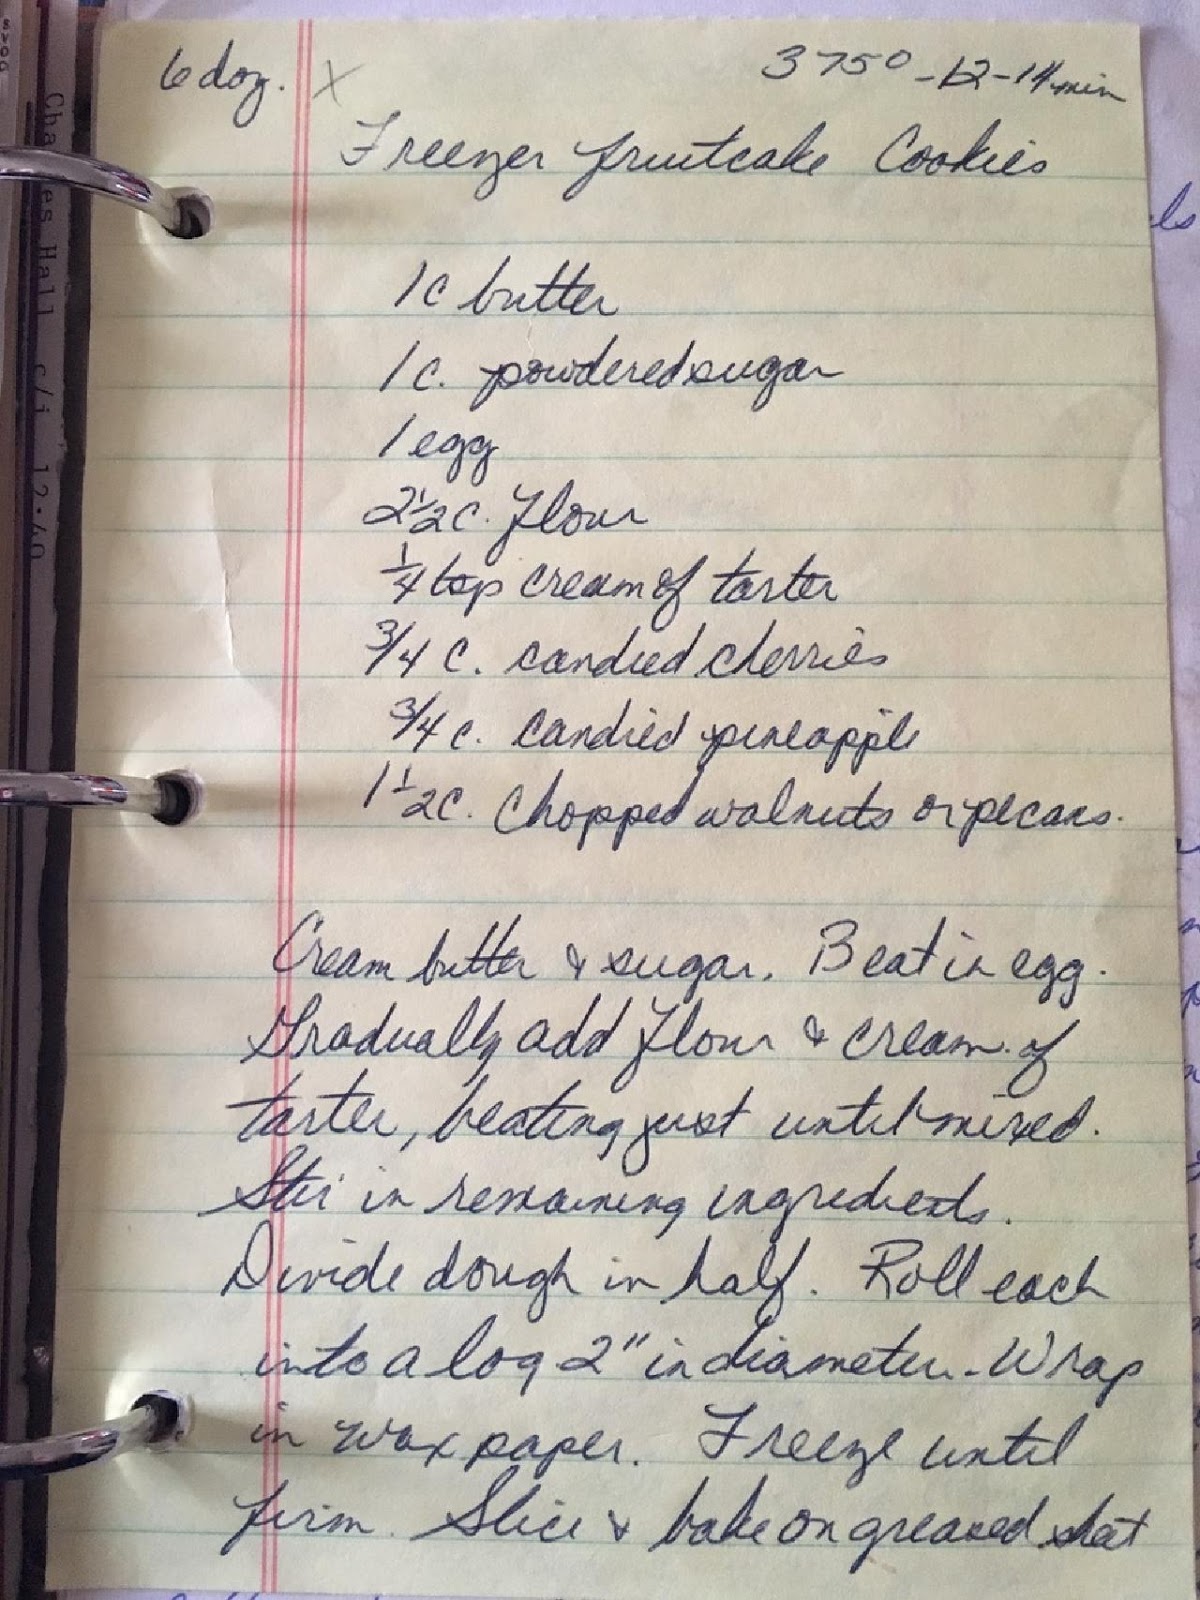 6 doz. X 375° - 12 - 14 min
Freezer fruitcake Cookies
1 c butter
1 c. powdered sugar
1 egg
2 1/2 c. flour
1/4 tsp cream of tarter
3/4 c. candied cherries
3/4 c. candied pineapple
1 1/2 c. chopped walnuts or pecans.
Cream butter & sugar. Beat in egg.
Gradually add flour & cream of
tarter, beating just until mixed.
Stir in remaining ingredients.
Divide dough in half. Roll each
into a log 2" in diameter - Wrap
in wax paper. Freeze until
firm. Slice & bake on greased sheet